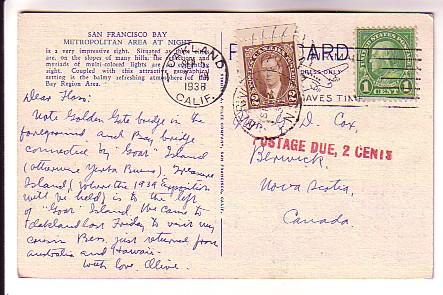 SAN FRANCISCO BAY
METROPOLITAN AREA AT NIGHT
is a very impressive sight. Situated as
are, on the slopes of many hills, the
myriads of multi-colored lights are
sight. Coupled with this attractive geographical
is the refreshing atmosphere of the
Bay Region Area.
Dear Floss:
Note Golden Gate bridge in the
foreground and Bay bridge
connected by "Goat" Island
(otherwise Yerba Buena). Treasure
Island (where the 1939 Exposition
will be held) is to the left
of "Goat" Island. We came to
Oakland last Friday to visit my
cousin Bess, just returned from
Australia and Hawaii.
With love, Olive.
OAKLAND
SEP
1938
CALIF.
CARD
ONLY
SAVES TIME
CANADA
2
UNITED STATES POSTAGE
1 1
G. D. Cox,
POSTAGE DUE, 2 CENTS
Berwick,
Nova Scotia,
Canada.